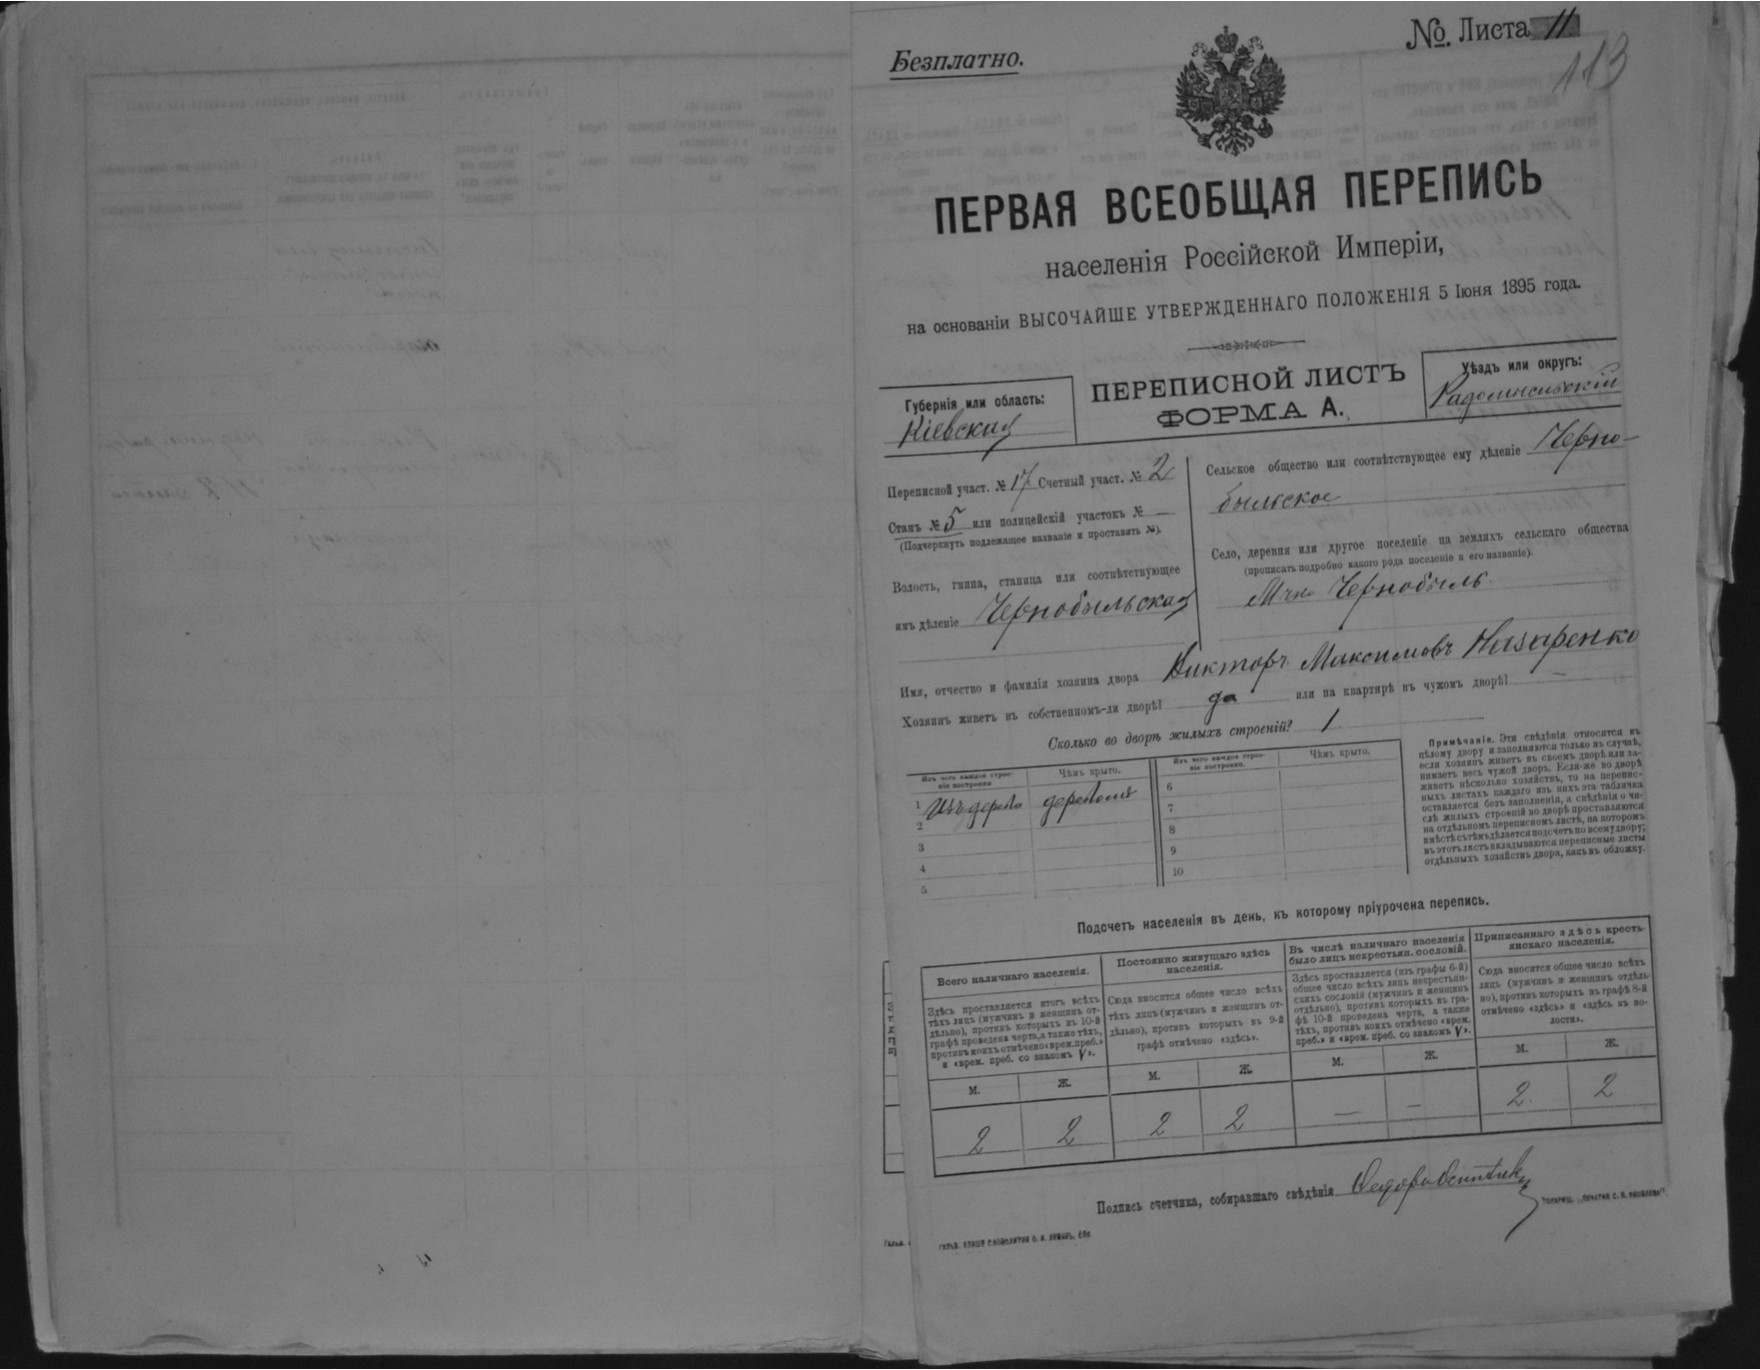 Безплатно.
No. Листа 11
113
ПЕРВАЯ ВСЕОБЩАЯ ПЕРЕПИСЬ
населенія Россійской Имперіи,
на основаніи ВЫСОЧАЙШЕ УТВЕРЖДЕННАГО ПОЛОЖЕНІЯ 5 Іюня 1895 года.
Губернія или область:
Кіевская
ПЕРЕПИСНОЙ ЛИСТЪ
ФОРМА А.
Уѣздъ или округъ:
Радомысльскій
Переписной участ. № 17 Счетный участ. № 2
Станъ № 5 или полицейскій участокъ № —
(Подчеркнуть подлежащее названіе и проставить №).
Волость, гмина, станица или соотвѣтствующее
имъ дѣленіе Чернобыльская
Сельское общество или соотвѣтствующее ему дѣленіе Черно-
быльское
Село, деревня или другое поселеніе на земляхъ сельскаго общества
(прописать подробно какого рода поселеніе и его названіе).
Мчко Чернобыль.
Имя, отчество и фамилія хозяина двора Викторъ Максимовъ Назаренко
Хозяинъ живетъ въ собственномъ-ли дворѣ? да или на квартирѣ въ чужомъ дворѣ? —
Сколько во дворѣ жилыхъ строеній? 1
Изъ чего каждое строе-
ніе построено
Чѣмъ крыто.
Изъ чего каждое строе-
ніе построено.
Чѣмъ крыто.
1 Изъ дерева деревомъ
2
3
4
5
6
7
8
9
10
Примѣчаніе. Эти свѣдѣнія относятся къ
цѣлому двору и заполняются только въ случаѣ,
если хозяинъ живетъ въ своемъ дворѣ или за-
нимаетъ весь чужой дворъ. Если-же во дворѣ
живетъ нѣсколько хозяйствъ, то на перепис-
ныхъ листахъ каждаго изъ нихъ эта табличка
оставляется безъ заполненія, а свѣдѣнія о чи-
слѣ жилыхъ строеній во дворѣ проставляются
на отдѣльномъ переписномъ листѣ, на которомъ
вмѣстѣ съ тѣмъ дѣлается подсчетъ по всему двору;
въ этотъ листъ вкладываются переписные листы
отдѣльныхъ хозяйствъ двора, какъ въ обложку.
Подсчетъ населенія въ день, къ которому пріурочена перепись.
Всего наличнаго населенія.
Здѣсь проставляется итогъ всѣхъ
тѣхъ лицъ (мужчинъ и женщинъ от-
дѣльно), противъ которыхъ въ 10-й
графѣ проведена черта, а также тѣхъ,
противъ коихъ отмѣчено «врем. преб.»
и «врем. преб. со знакомъ V».
Постоянно живущаго здѣсь
населенія.
Сюда вносится общее число всѣхъ
тѣхъ лицъ (мужчинъ и женщинъ от-
дѣльно), противъ которыхъ въ 9-й
графѣ отмѣчено «здѣсь».
Въ числѣ наличнаго населенія
было лицъ некрестьян. сословій.
Здѣсь проставляется (изъ графы 6-й)
общее число всѣхъ лицъ некрестьян-
скихъ сословій (мужчинъ и женщинъ
отдѣльно), противъ которыхъ въ гра-
фѣ 10-й проведена черта, а также
тѣхъ, противъ коихъ отмѣчено «врем.
преб.» и «врем. преб. со знакомъ V».
Приписаннаго здѣсь кресть-
янскаго населенія.
Сюда вносится общее число всѣхъ
лицъ (мужчинъ и женщинъ отдѣль-
но), противъ которыхъ въ графѣ 8-й
отмѣчено «здѣсь» и «здѣсь въ во-
лости».
М. Ж. М. Ж. М. Ж. М. Ж.
2 2 2 2 — — 2 2
Подпись счетчика, собиравшаго свѣдѣнія